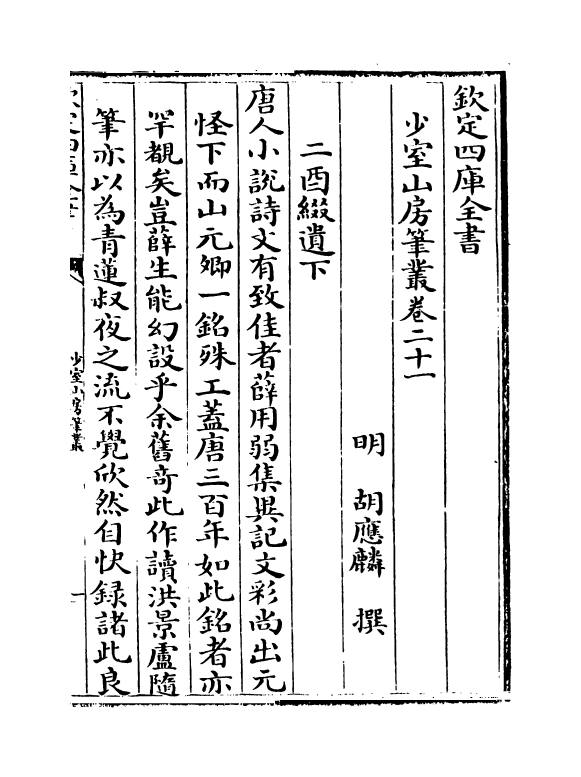 欽定四庫全書
少室山房筆叢卷二十一
明　胡應麟　撰
二酉綴遺下
唐人小說詩文有致佳者薛用弱集異記文彩尚出元
怪下而山元卿一銘殊工蓋唐三百年如此銘者亦
罕覩矣豈薛生能幻設乎余舊奇此作讀洪景盧隨
筆亦以為青蓮叔夜之流不覺欣然自快録諸此良
少室山房筆叢
一